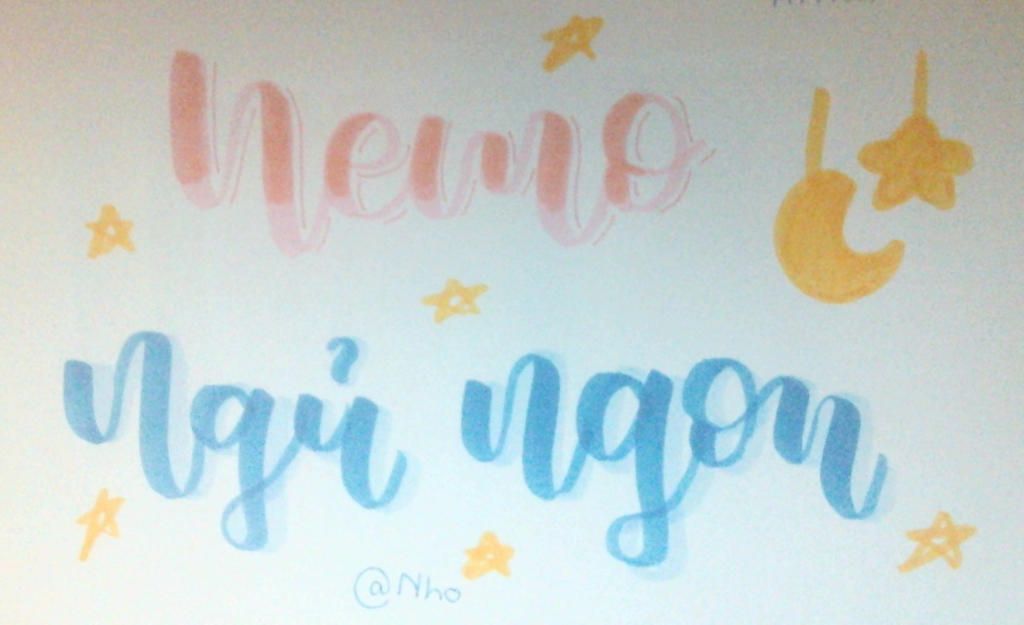 Nemo
Ngủ ngon
@Nho